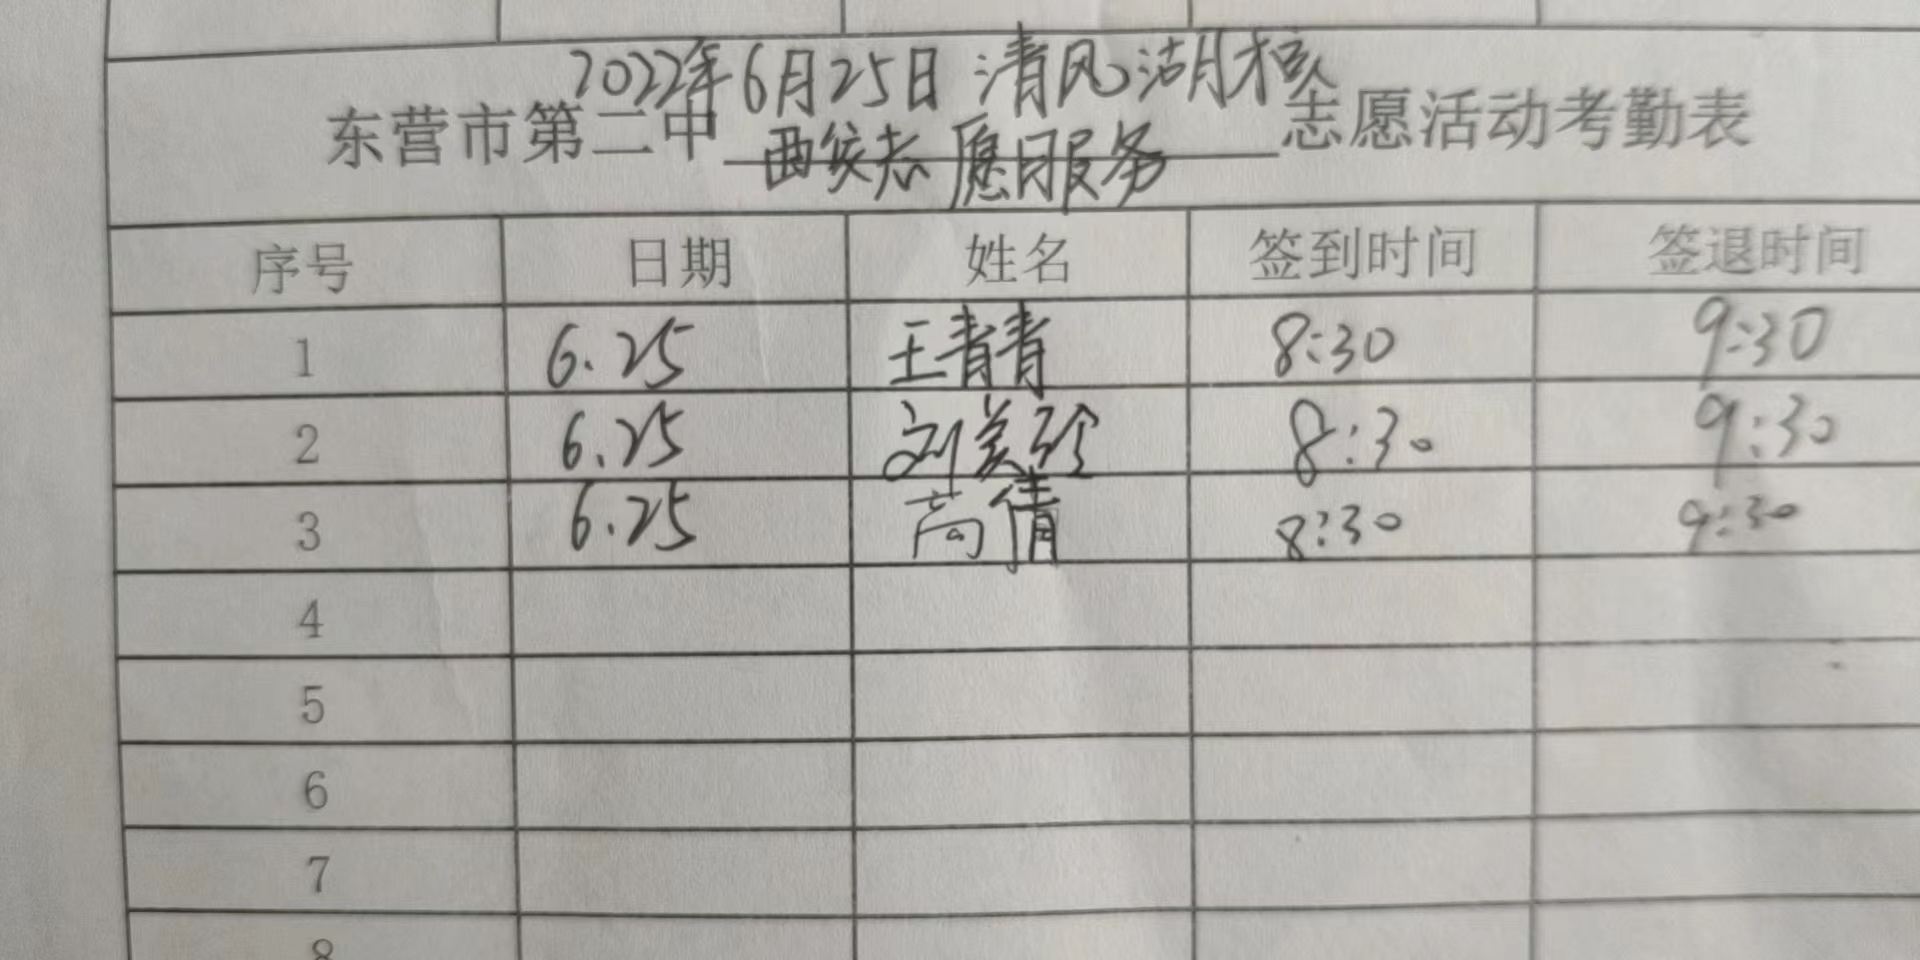 2022年6月25日清风湖核
东营市第二中 酉安志愿服务 志愿活动考勤表
序号 日期 姓名 签到时间 签退时间
1 6.25 王青青 8:30 9:30
2 6.25 刘美玲 8:30 9:30
3 6.25 高倩 8:30 9:30
4
5
6
7
8